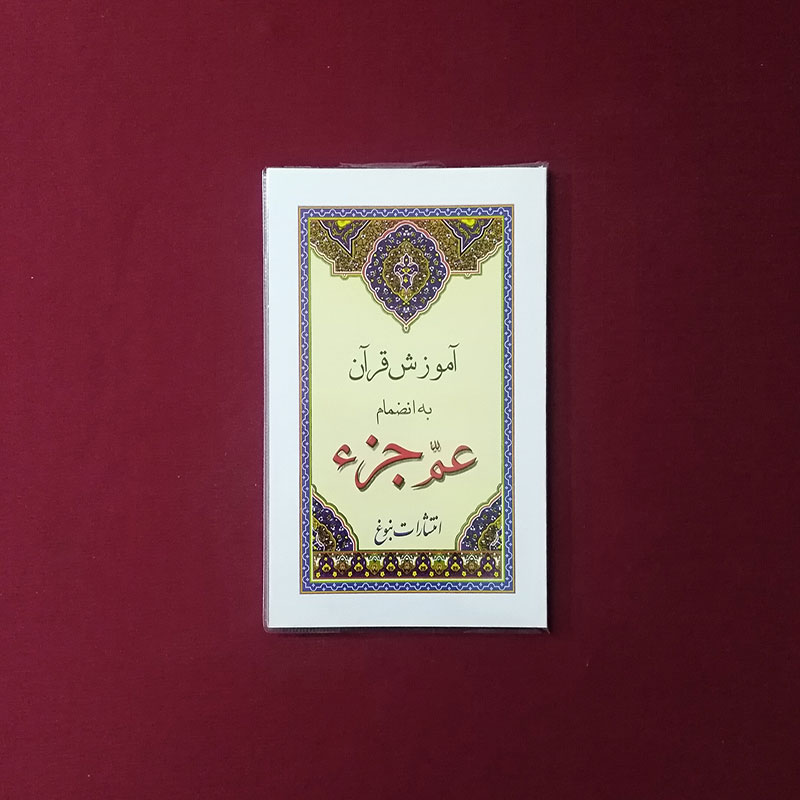 آموزش قرآن
به انضمام
عمّ جزء
انتشارات نبوغ